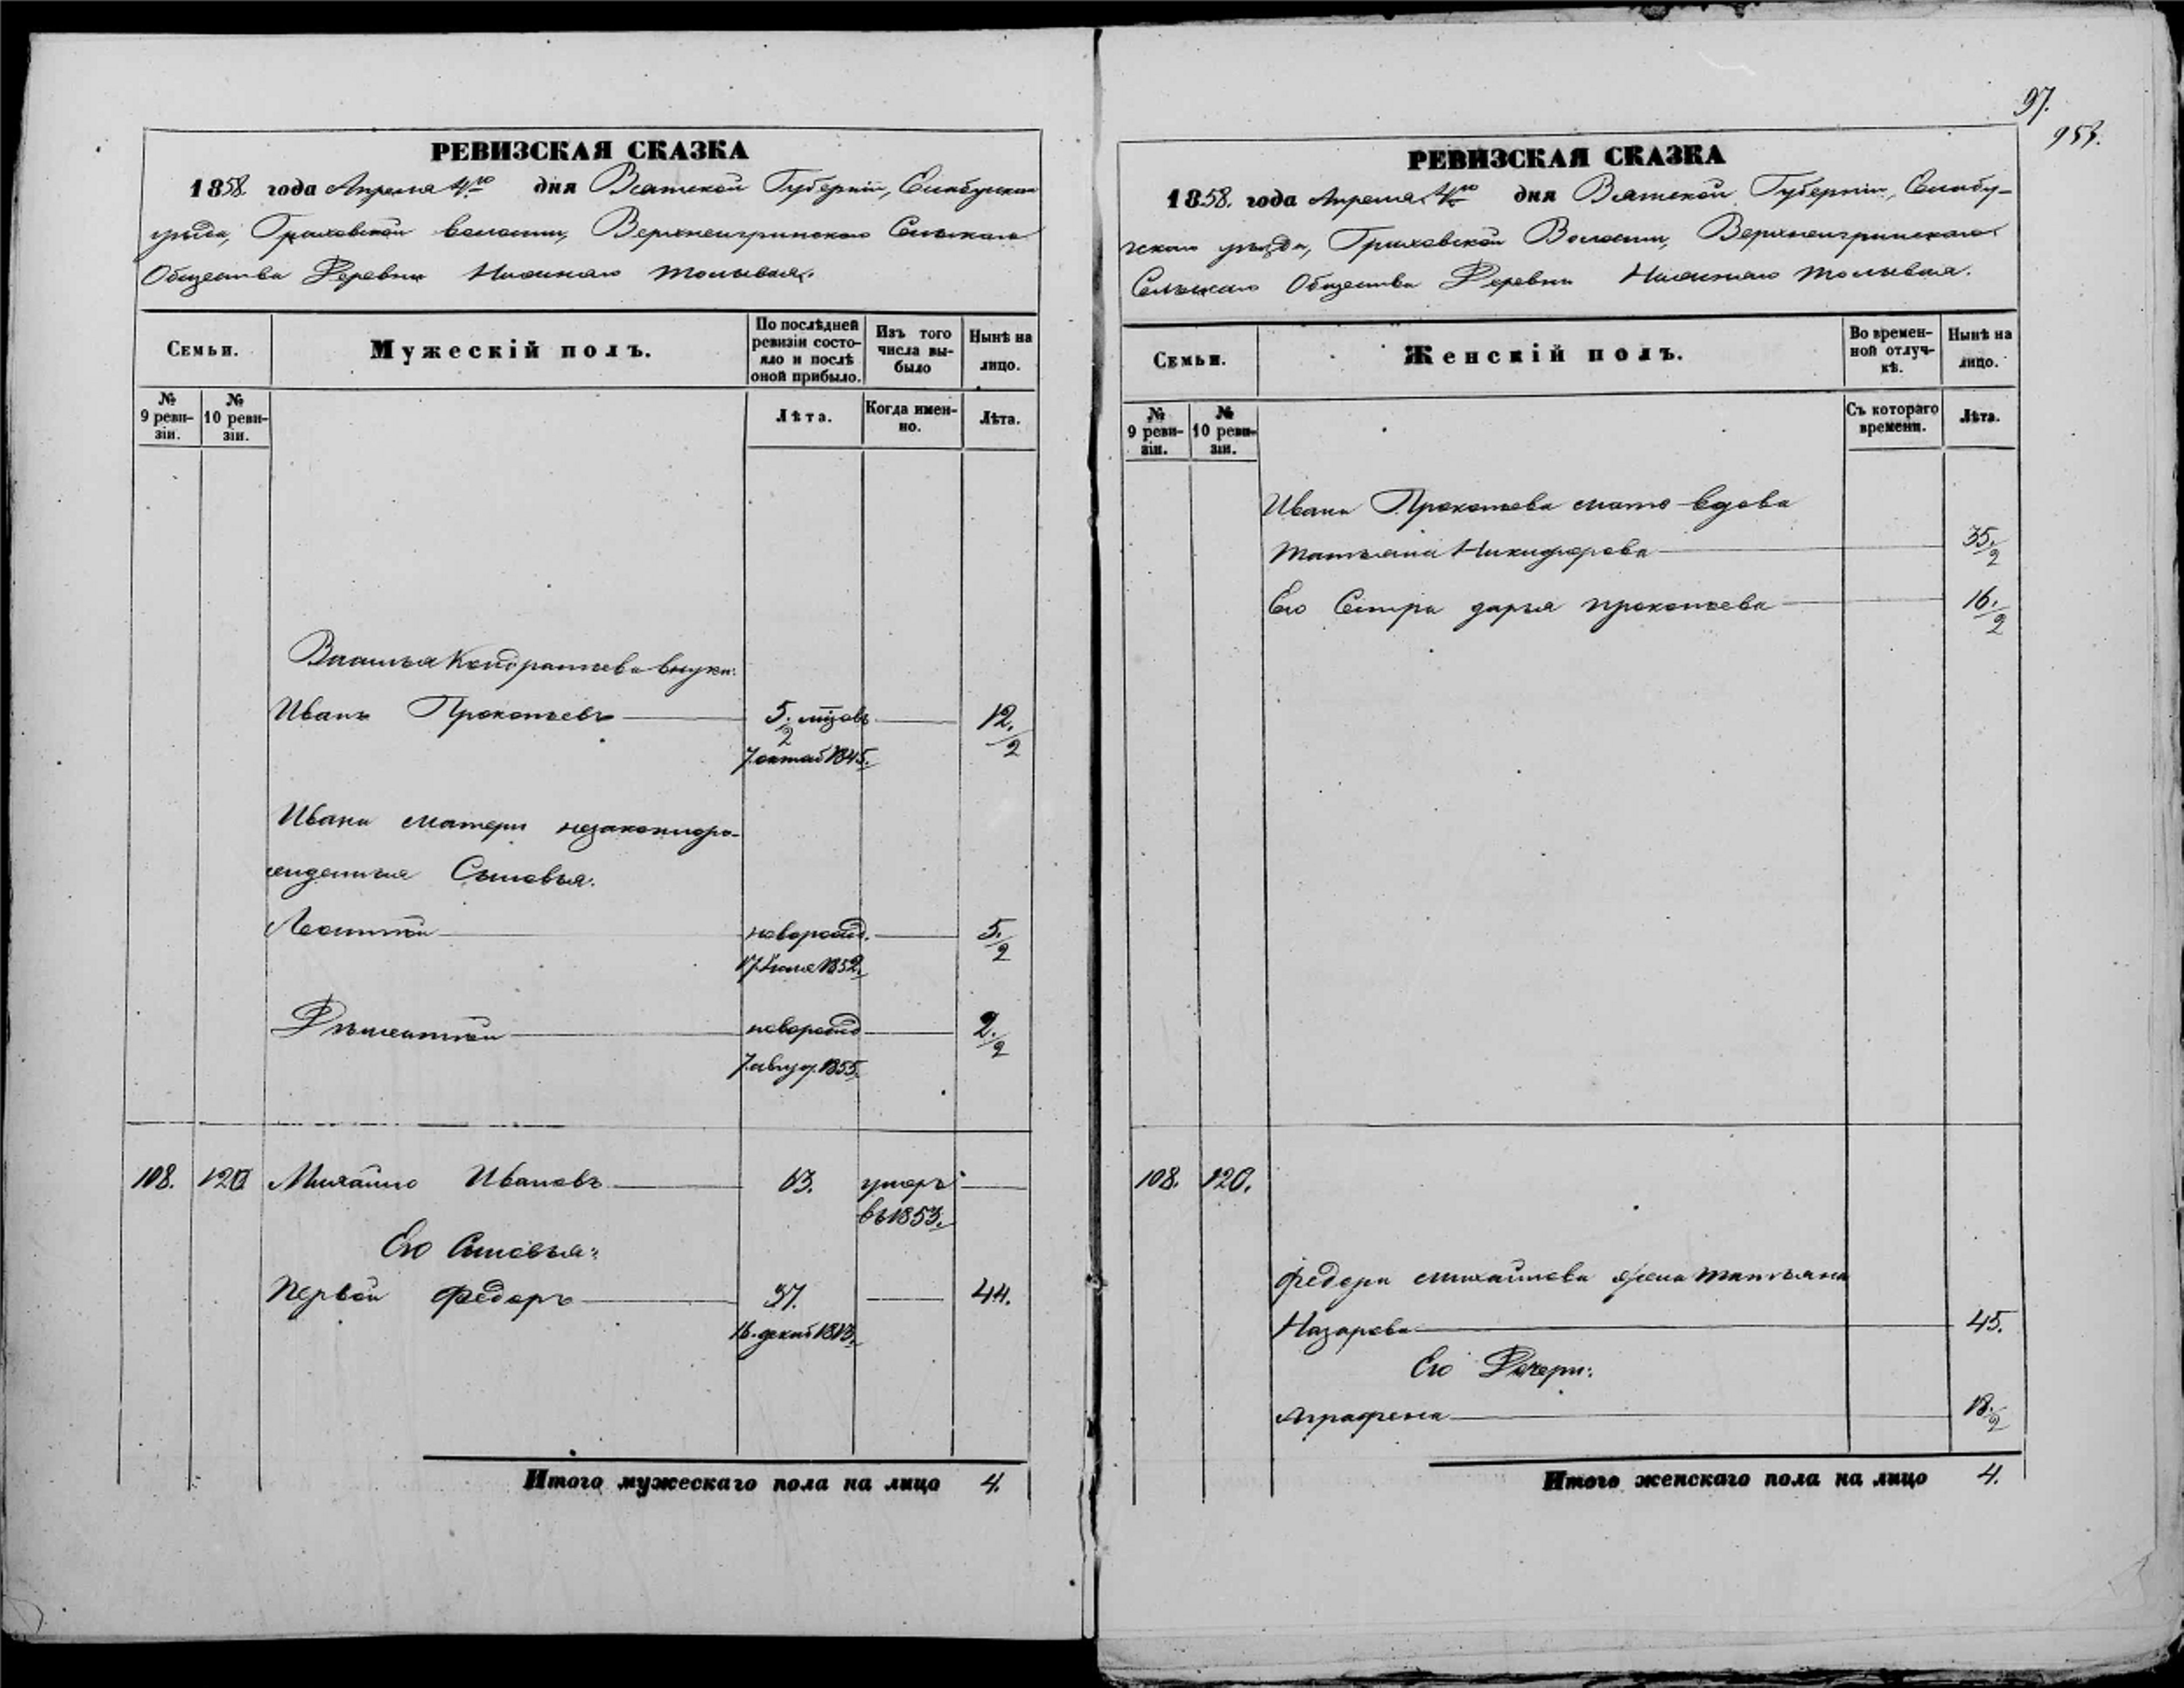 РЕВИЗСКАЯ СКАЗКА
1858. года Апреля дня Вятской Губерніи, Елабугскаго
уезда, Граховской волости, Верхнеигринскаго Сельскаго
Общества Деревни Нижняго
Семьи.
Мужескій полъ.
По послѣдней ревизіи состояло и послѣ оной прибыло.
Изъ того числа выбыло
Нынѣ на лицо.
№ 9 ревизіи.
№ 10 ревизіи.
Лѣта.
Когда именно.
Лѣта.
Василья Кондратьева внукъ:
Иванъ Прокопьевъ 5. 1/2 12. 1/2
7. октяб 1845.
Ивана матери незаконноро-
жденныя Сыновья.
Леонтій новорожд. 5. 1/2
17. Іюля 1852.
Дементій новорожд 2. 1/2
7. авгус. 1855.
108. 120 Михайло Ивановъ 63. умеръ
въ 1853.
Его Сыновья:
Первой Федоръ 37. 44.
16. декаб 1813.
Итого мужескаго пола на лицо 4.
97.
953.
РЕВИЗСКАЯ СКАЗКА
1858. года Апреля дня Вятской Губерніи, Елабу-
жскаго уезда, Граховской Волости, Верхнеигринскаго
Сельскаго Общества Деревни Нижняго
Семьи.
Женскій полъ.
Во временной отлучкѣ.
Нынѣ на лицо.
№ 9 ревизіи.
№ 10 ревизіи.
Съ котораго времени.
Лѣта.
Ивана Прокопьева мать вдова
Татьяна Никифорова 35. 1/2
Его Сестра дарья прокопьева 16. 1/2
108. 120.
Федора михайлова жена татьяна
Назарова 45.
Его Дочери:
Аграфена 18. 1/2
Итого женскаго пола на лицо 4.